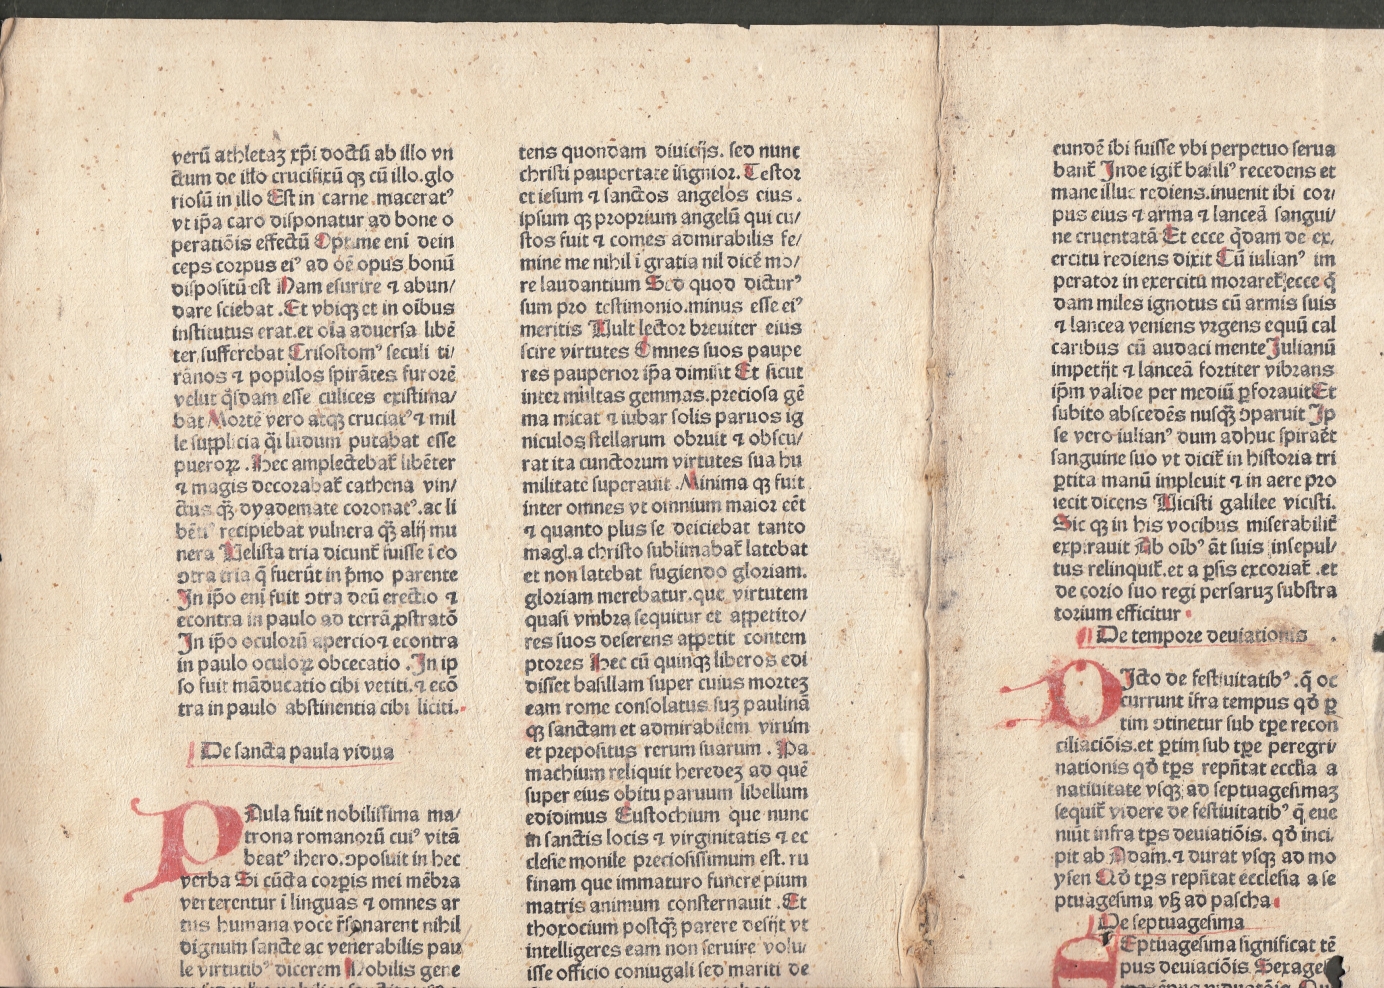 verū athletaʒ xp̄i doctū ab illo vn
ctum de illo crucifixū qʒ cū illo.glo
riosū in illo Est in carne macerat᾿
vt ip̄a caro disponatur ad bone o
peratiōis effectū Optime eni dein
ceps corpus ei᾿ ad oē opus bonū
dispositū est Nam esurire ⁊ abun/
dare sciebat .Et vbiqʒ et in oībus
institutus erat.et oīa aduersa libē
ter sufferebat Crisostom᾿ seculi ti/
rānos ⁊ populos spirātes furorē
velut q̄sdam esse culices existima/
bat Mortē vero atqʒ cruciat᾿ ⁊ mil
le supplicia q̄i ludum putabat esse
pueroꝝ .Hec amplectebat̄ libēter
⁊ magis decorabat̄ cathena vin/
ctus qʒ̄ dyademate coronat᾿.ac li
bēti᾿ recipiebat vulnera qʒ̄ alij mu
nera Velista tria dicunt̄ fuisse ī eo
ɔtra tria q̄ fuerūt in p̄mo parente
In ip̄o eni fuit ɔtra deū erectio ⁊
econtra in paulo ad terrā ꝓstratō
In ip̄o oculorū apercio⁊ econtra
in paulo oculoꝝ obcecatio .In ip
so fuit māducatio cibi vetiti.⁊ ecō
tra in paulo abstinentia cibi liciti.
De sancta paula vidua
PAula fuit nobilissima ma/
trona romanorū cui᾿ vitā
beat᾿ ihero.ɔposuit in hec
verba Si cūcta corꝑis mei mēbra
verterentur ī linguas ⁊ omnes ar
tus humana voce r̄sonarent nihil
dignum sancte ac venerabilis pau
le virtutib᾿ dicerem Nobilis gene
tens quondam diuicijs. sed nunc
christi paupertate īsignior. Testor
et iesum ⁊ sanctos angelos eius .
ipsum qʒ proprium angelū qui cu/
stos fuit ⁊ comes admirabilis fe/
mine me nihil ī gratia nil dicē mo/
re laudantium Sed quod dictur᾿
sum pro testimonio.minus esse ei᾿
meritis Vult lector breuiter eius
scire virtutes Omnes suos paupe
res pauperior ip̄a dimisit Et sicut
inter multas gemmas.preciosa gē
ma micat ⁊ iubar solis paruos ig
niculos stellarum obruit ⁊ obscu/
rat ita cunctorum virtutes sua hu
militate superauit .Minima qʒ fuit
inter omnes vt omnium maior cēt
⁊ quanto plus se deiciebat tanto
magl.a christo sublimabat̄ latebat
et non latebat fugiendo gloriam.
gloriam merebatur.que virtutem
quasi vmbra sequitur et appetito/
res suos deserens appetit contem
ptores Hec cū quinqʒ liberos edi
disset basillam super cuius morteʒ
eam rome consolatus suʒ paulinā
qʒ sanctam et admirabilem virum
et prepositus rerum suarum . Pa
machium reliquit heredeʒ ad quē
super eius obitu paruum libellum
edidimus Eustochium que nunc
in sanctis locis ⁊ virginitatis ⁊ ec
clesie monile preciosissimum est. ru
finam que immaturo funere pium
matris animum consternauit .Et
thoxocium postqʒ̄ parere desijt vt
intelligeres eam non seruire volu/
isse officio coniugali sed mariti de
eundē ibi fuisse vbi perpetuo serua
bant̄ Inde igit̄ basili᾿ recedens et
mane illuc rediens.inuenit ibi cor/
pus eius ⁊ arma ⁊ lanceā sangui/
ne cruentatā Et ecce q̄dam de ex/
ercitu rediens dixit Cū iulian᾿ im
perator in exercitu moraret̄ ecce q̄
dam miles ignotus cū armis suis
⁊ lancea veniens vrgens equū cal
caribus cū audaci mente Iulianū
impetijt ⁊ lanceā fortiter vibrans
ip̄m valide per mediū ꝑforauit Et
subito abscedēs nusqʒ̄ ɔparuit Ip
se vero iulian᾿ dum adhuc spiraēt
sanguine suo vt dicit̄ in historia tri
ꝑtita manū impleuit ⁊ in aere pro
iecit dicens Vicisti galilee vicisti.
Sic qʒ in his vocibus miserabilit̄
expirauit Ab oīb᾿ āt suis insepul/
tus relinquit̄.et a ꝑsis excoriat̄ .et
de corio suo regi persaruʒ substra
torium efficitur
De tempore deuiationis
DIcto de festiuitatib᾿.q̄ oc
currunt īfra tempus qd̄ ꝑ
tim ɔtinetur sub tp̄e recon
ciliaciōis.et ꝑtim sub tp̄e peregri
nationis qd̄ tp̄s repn̄tat eccl̄ia a
natiuitate vsqʒ ad septuagesimaʒ
sequit̄ videre de festiuitatib᾿ q̄ eue
niūt infra tp̄s deuiatiōis. qd̄ inci
pit ab Adam.⁊ durat vsqʒ ad mo
ysen Qd̄ tp̄s repn̄tat ecclesia a se
ptuagesima vsqʒ ad pascha
De septuagesima
SEptuagesima significat tē
pus deuiaciōis Sexage